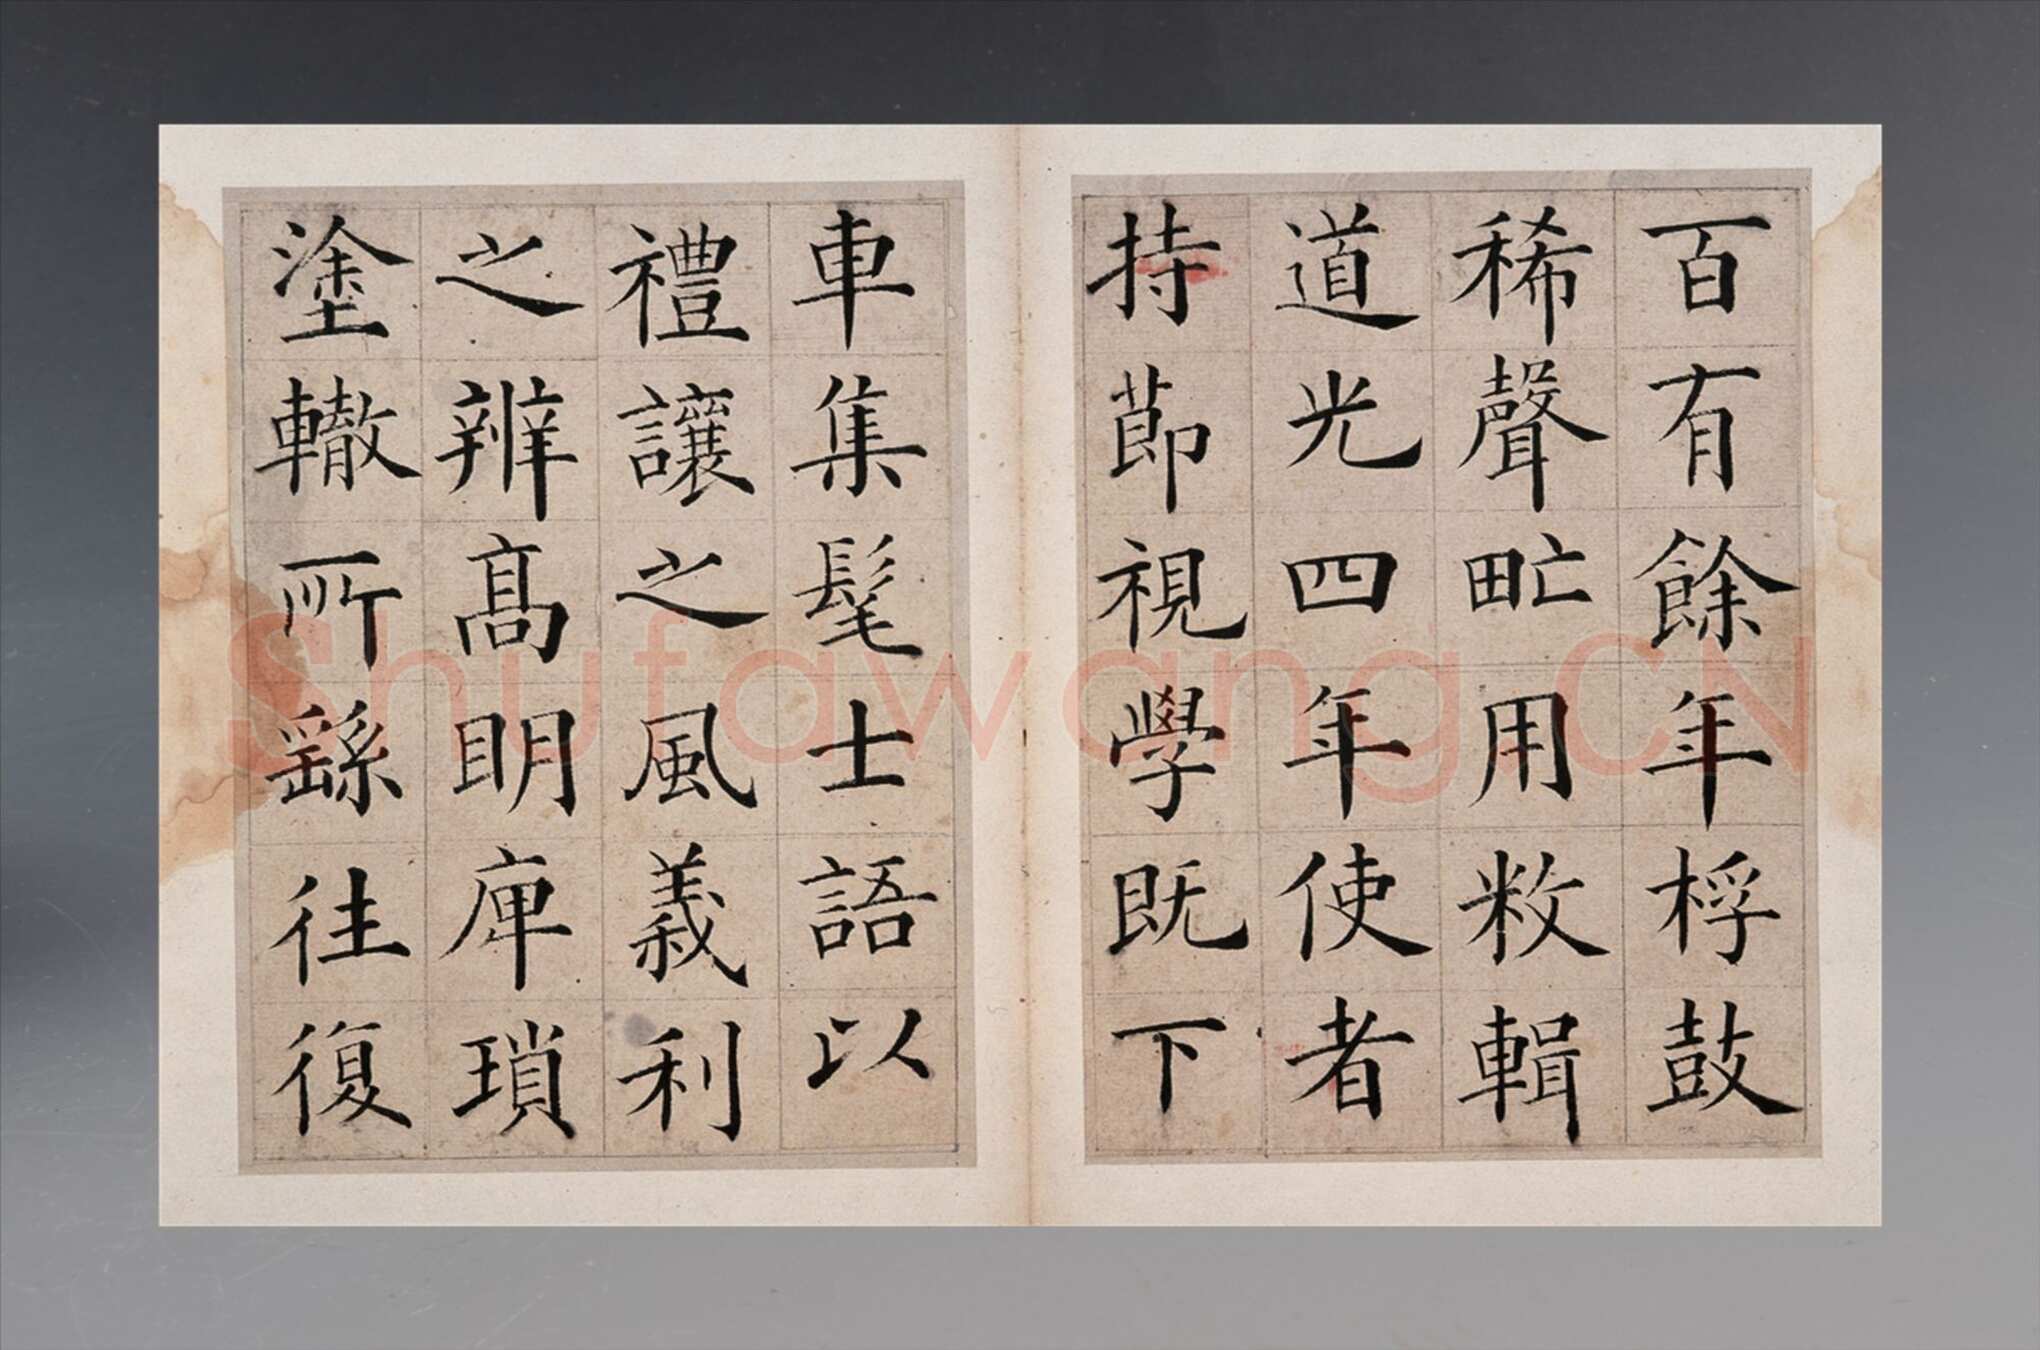 百有餘年桴鼓
稀聲甿用敉輯
道光四年使者
持莭視學既下
車集髦士語以
禮讓之風義利
之辨髙眀庳瑣
塗轍所繇往復
Shufawang.CN